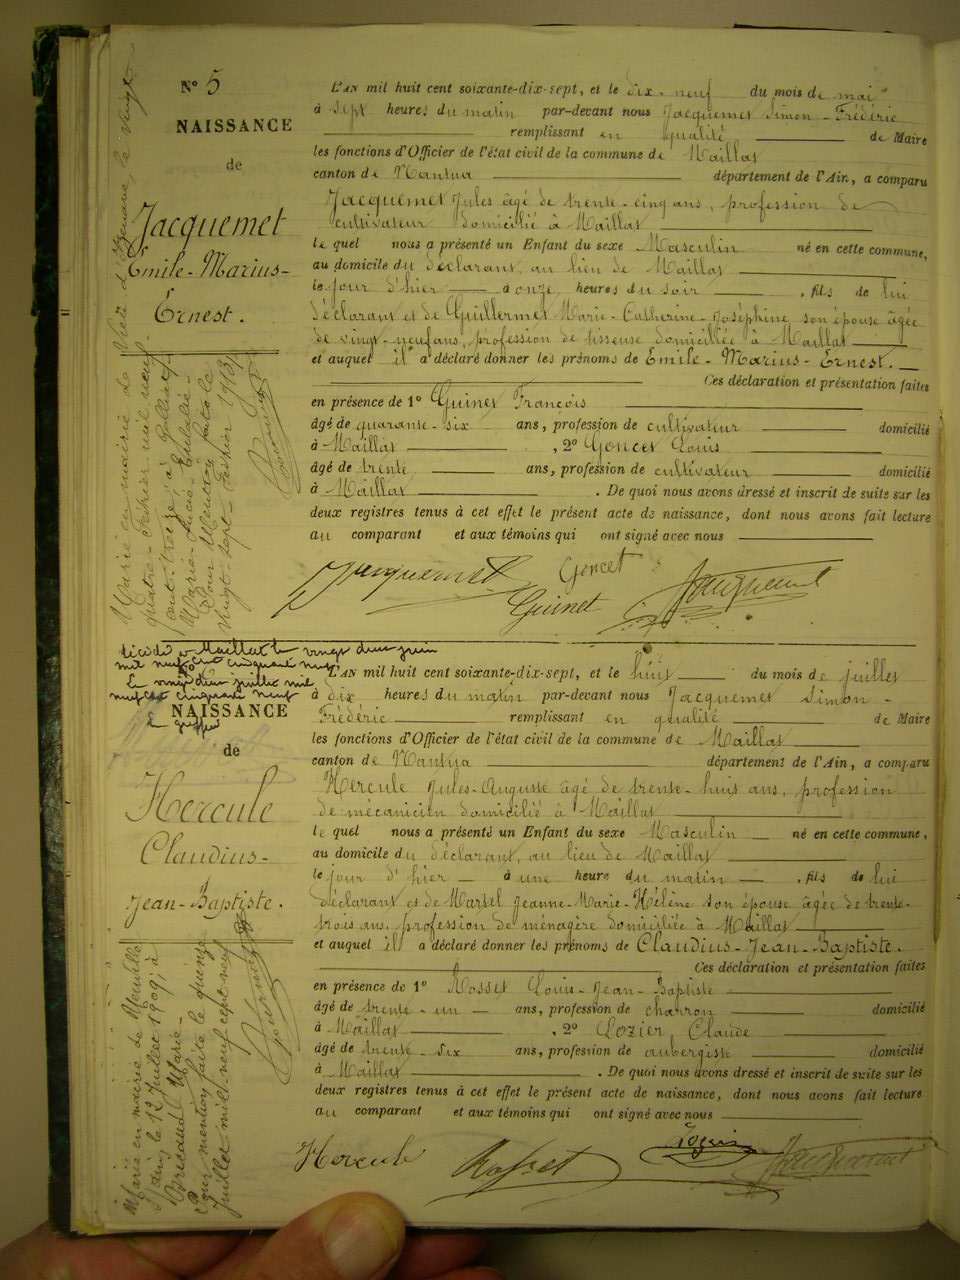 N° 5
NAISSANCE
de
Jacquemet
Émile-Marius-
Ernest.
L'AN mil huit cent soixante-dix-sept, et le dix-neuf du mois de mai
à sept heures du matin par-devant nous Jacquemet Simon-Frédéric
remplissant en qualité de Maire
les fonctions d'Officier de l'état civil de la commune de Maillat
canton de Nantua département de l'Ain, a comparu
Jacquemet Jules âgé de trente-cinq ans, profession de
cultivateur domicilié à Maillat
le quel nous a présenté un Enfant du sexe Masculin né en cette commune,
au domicile du déclarant, au lieu de Maillat
le jour d'hier à onze heures du soir, fils de lui
déclarant et de Guillermet Marie-Catherine-Joséphine son épouse âgée
de vingt-neuf ans, profession de tisseuse domiciliée à Maillat
et auquel il a déclaré donner les prénoms de Émile-Marius-Ernest.
Ces déclaration et présentation faites
en présence de 1° Guinet François
âgé de quarante-six ans, profession de cultivateur domicilié
à Maillat, 2° Goncet Louis
âgé de trente ans, profession de cultivateur domicilié
à Maillat. De quoi nous avons dressé et inscrit de suite sur les
deux registres tenus à cet effet le présent acte de naissance, dont nous avons fait lecture
au comparant et aux témoins qui ont signé avec nous
Jacquemet Goncet
Guinet Jacquemet
Marié en mairie de
quatre Février mil neuf
cent treize à
Marie-Lucie-Eulalie
Pour Mention faite le
vingt-sept Février 1913
décédé à Maillat le vingt deux juin
mil neuf cent cinquante neuf
Le vingt deux juillet mil
neuf cent cinquante neuf
Le greffier
NAISSANCE
de
Hercule
Claudius-
Jean-Baptiste.
L'AN mil huit cent soixante-dix-sept, et le huit du mois de juillet
à dix heures du matin par-devant nous Jacquemet Simon-
Frédéric remplissant en qualité de Maire
les fonctions d'Officier de l'état civil de la commune de Maillat
canton de Nantua département de l'Ain, a comparu
Hercule Jules-Auguste âgé de trente-huit ans, profession
de mécanicien domicilié à Maillat
le quel nous a présenté un Enfant du sexe Masculin né en cette commune,
au domicile du déclarant, au lieu de Maillat
le jour d'hier à une heure du matin, fils de lui
déclarant et de Martel Jeanne-Marie-Hélène son épouse âgée de trente-
trois ans, profession de ménagère domiciliée à Maillat
et auquel il a déclaré donner les prénoms de Claudius-Jean-Baptiste.
Ces déclaration et présentation faites
en présence de 1° Rosset Louis-Jean-Baptiste
âgé de trente-un ans, profession de charron domicilié
à Maillat, 2° Lozier, Claude
âgé de trente-six ans, profession de aubergiste domicilié
à Maillat. De quoi nous avons dressé et inscrit de suite sur les
deux registres tenus à cet effet le présent acte de naissance, dont nous avons fait lecture
au comparant et aux témoins qui ont signé avec nous
Hercule Rosset Jacquemet
Marié en mairie de
le 12 Juillet 1909, à
Marie
Pour mention faite le quinze
Juillet mil neuf cent neuf